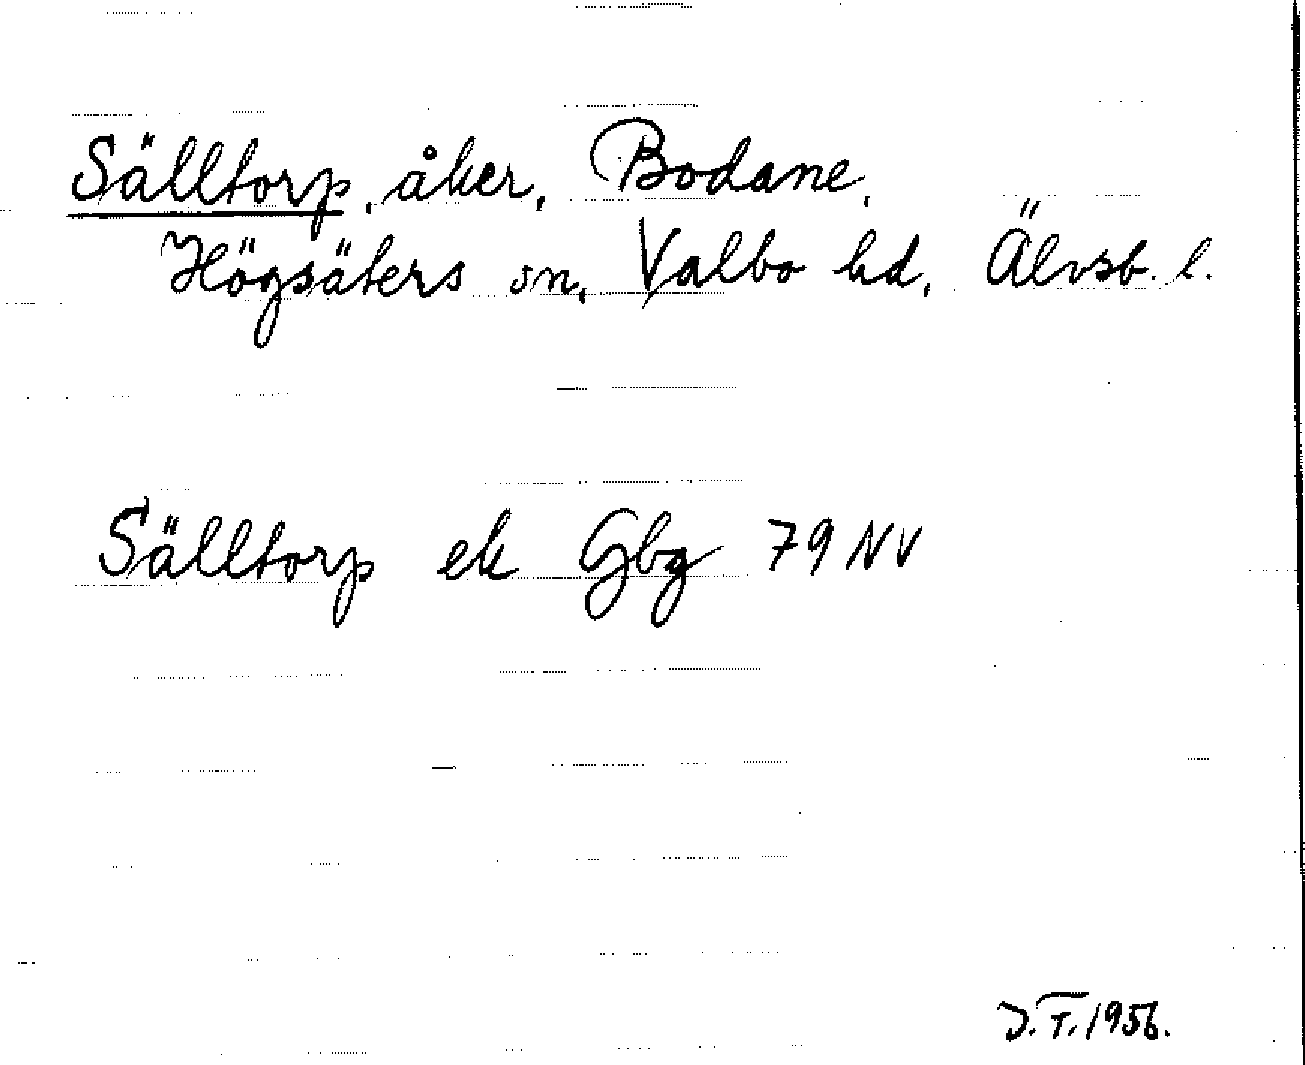 Sälltorp, åker, Bodane,
Högsäters sn, Valbo hd, Älvsb. l.
Sälltorp ek Gbg 79 NV
J.T. 1956.